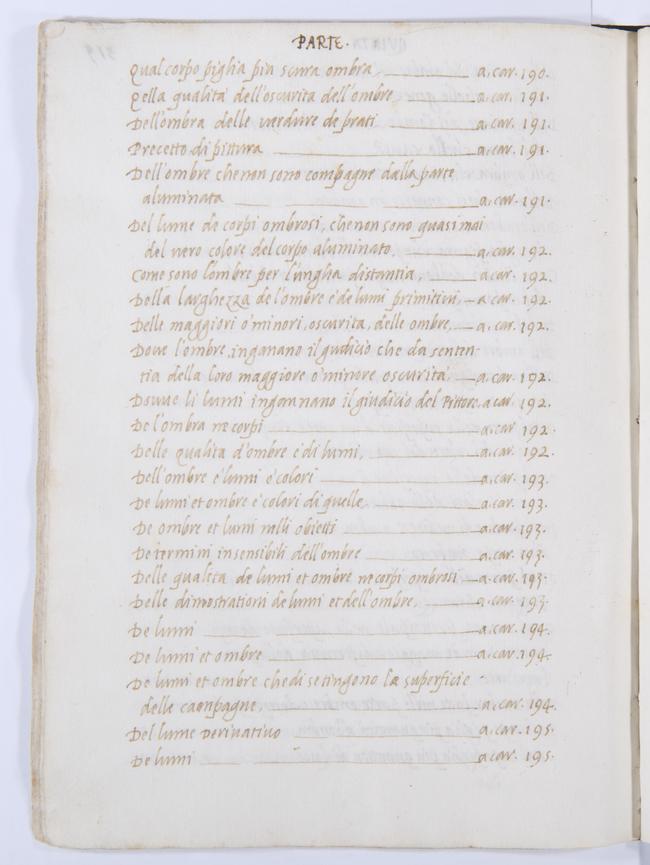 PARTE.
Qual corpo piglia piu scura ombra a, car. 190.
Della qualita dell'oscurita dell'ombre a, car. 191.
Dell'ombra delle verdure de prati a, car. 191.
Precetto di pittura a, car. 191.
Dell'ombre che non sono compagne dalla parte
aluminata a, car. 191.
Del lume de corpi ombrosi, che non sono quasi mai
del vero colore del corpo aluminato, a, car. 192.
Come sono l'ombre per lungha distantia, a car. 192.
Della larghezza de l'ombre e de lumi primitivi, a car. 192.
Delle maggiori o minori, oscurita, delle ombre, a car. 192.
Dove l'ombre inganano il giudicio che da senten
tia della loro maggiore o minore oscurita. a, car. 192.
Dove li lumi ingannano il giudicio del Pittore, a, car 192.
De l'ombra ne corpi a, car. 192.
Delle qualita d'ombre e di lumi, a, car. 192.
Dell'ombre e lumi e colori a, car. 193.
De lumi et ombre e colori di quelle a, car. 193.
De ombre et lumi nelli obietti a, car. 193.
De termini insensibili dell'ombre a, car. 193.
Delle qualita de lumi et ombre ne corpi ombrosi a, car. 193.
Delle dimostrationi de lumi et dell'ombre, a, car. 193.
De lumi a, car. 194.
De lumi et ombre a, car. 194.
De lumi et ombre che di se tingono la superficie
delle canpagne, a, car. 194.
Del lume derivativo a, car. 195.
De lumi a, car. 195.